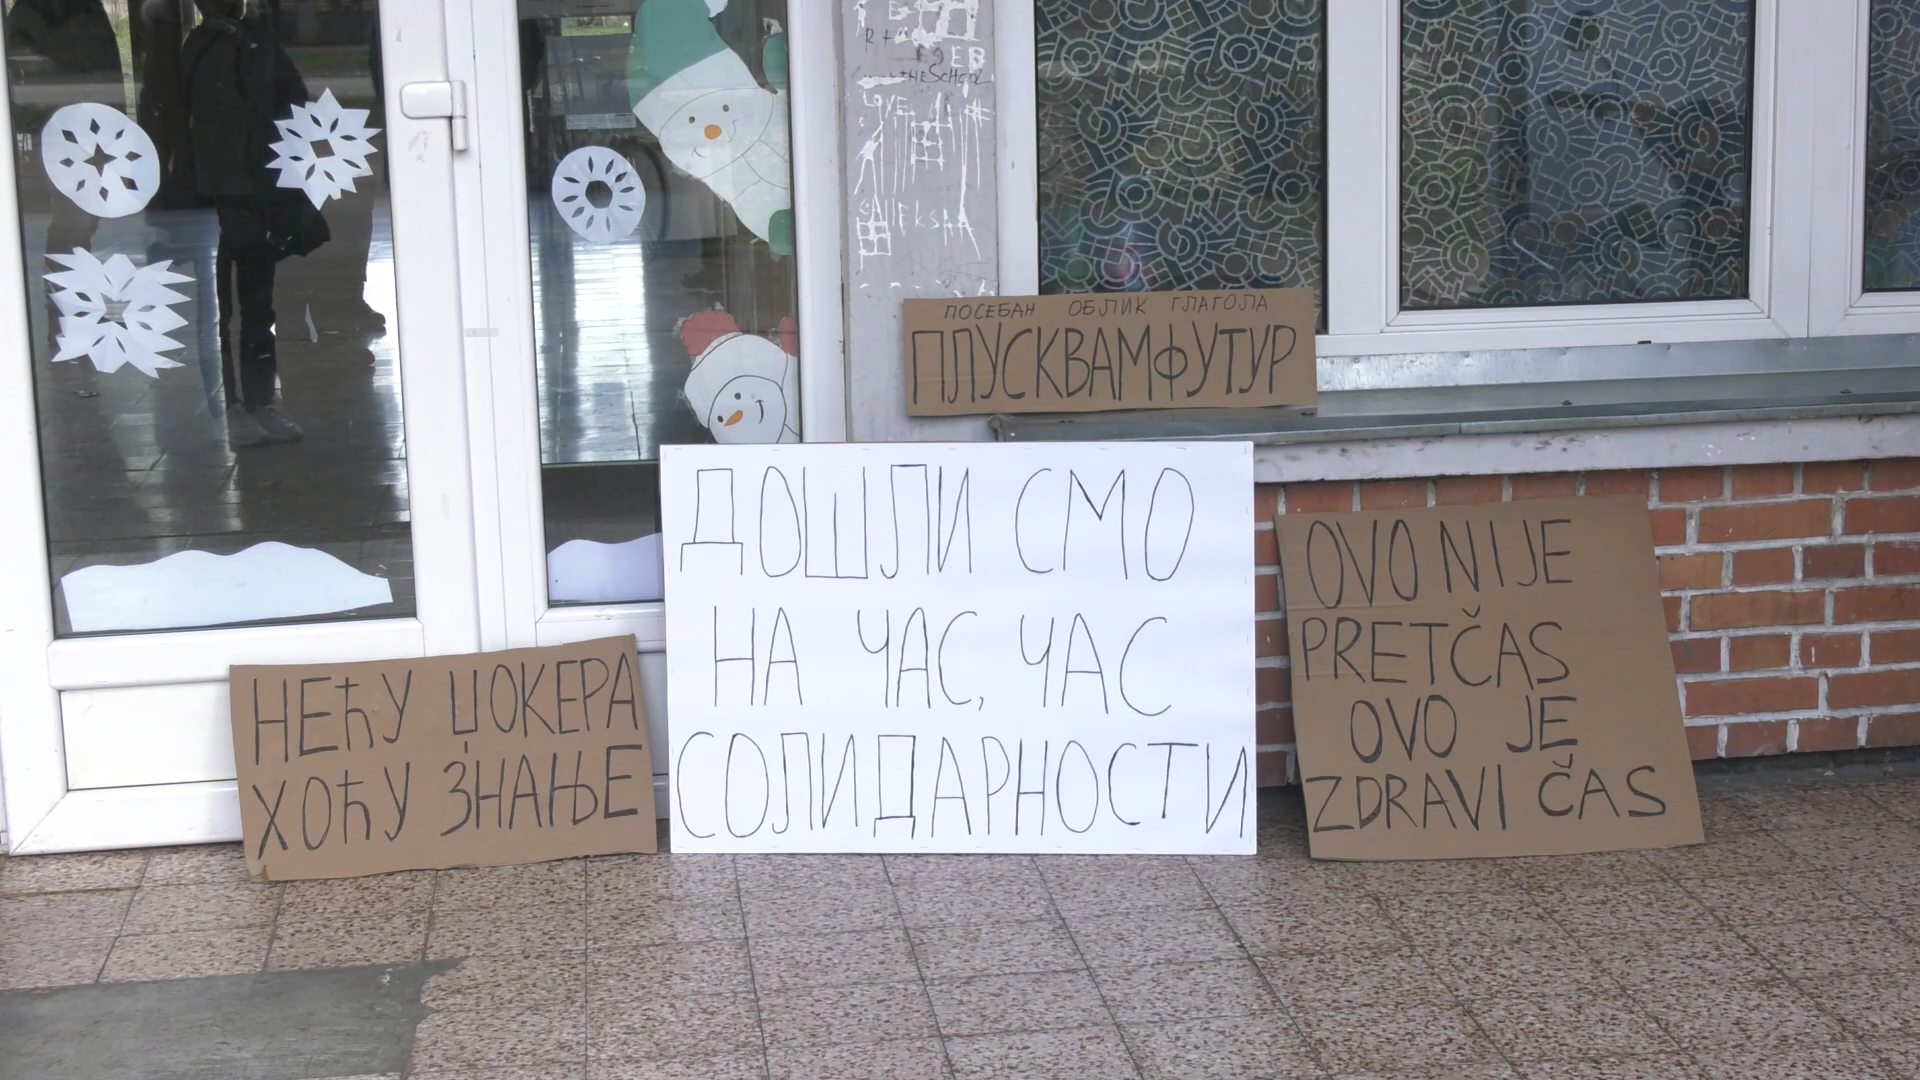 ПОСЕБАН ОБЛИК ГЛАГОЛА
ПЛУСКВАМФУТУР
ДОШЛИ СМО
НА ЧАС, ЧАС
СОЛИДАРНОСТИ
НЕЋУ ЏОКЕРА
ХОЋУ ЗНАЊЕ
OVO NIJE
PRETČAS
OVO JE
ZDRAVI ČAS